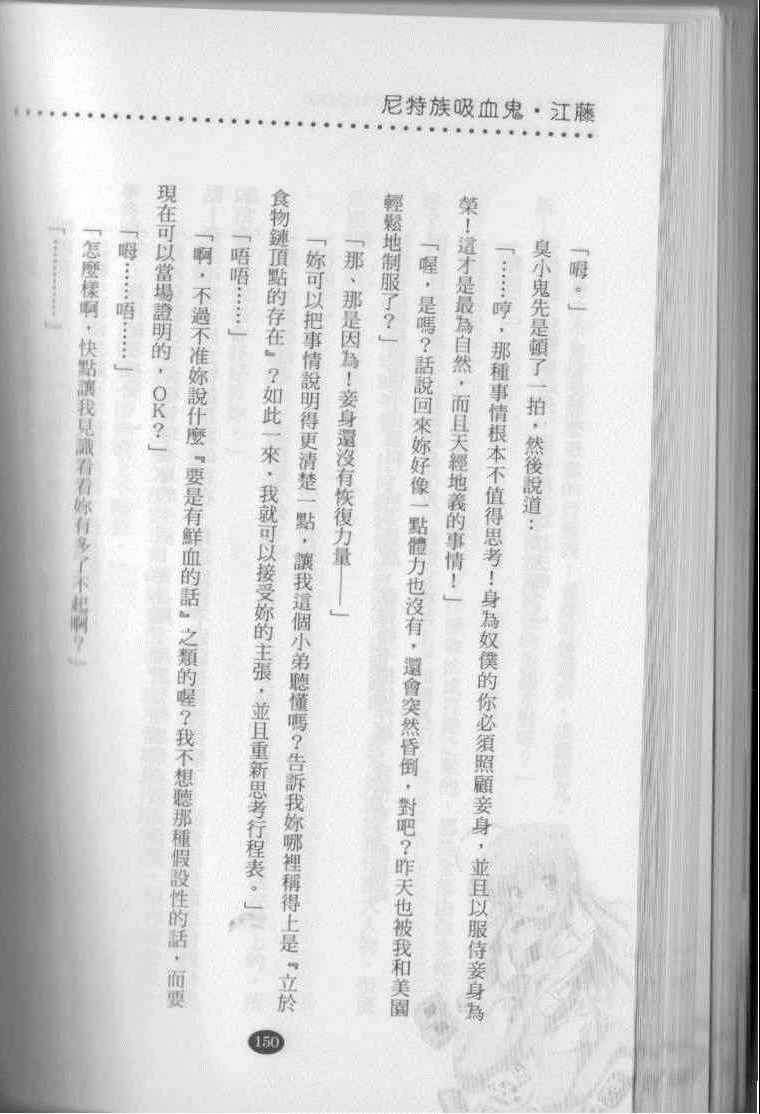 尼特族吸血鬼・江藤
「嗯。」
臭小鬼先是頓了一拍，然後說道：
「……哼，那種事情根本不值得思考！身為奴僕的你必須照顧妾身，並且以服侍妾身為
榮！這才是最為自然，而且天經地義的事情！」
「喔，是嗎？話說回來妳好像一點體力也沒有，還會突然昏倒，對吧？昨天也被我和美園
輕鬆地制服了？」
「那、那是因為！妾身還沒有恢復力量——」
「妳可以把事情說明得更清楚一點，讓我這個小弟聽懂嗎？告訴我妳哪裡稱得上是『立於
食物鏈頂點的存在』？如此一來，我就可以接受妳的主張，並且重新思考行程表。」
「唔唔……」
「啊，不過不准妳說什麼『要是有鮮血的話』之類的喔？我不想聽那種假設性的話，而要
現在可以當場證明的，OK？」
「嗯……唔……」
「怎麼樣啊，快點讓我見識看看妳有多了不起啊？」
「…………」
150